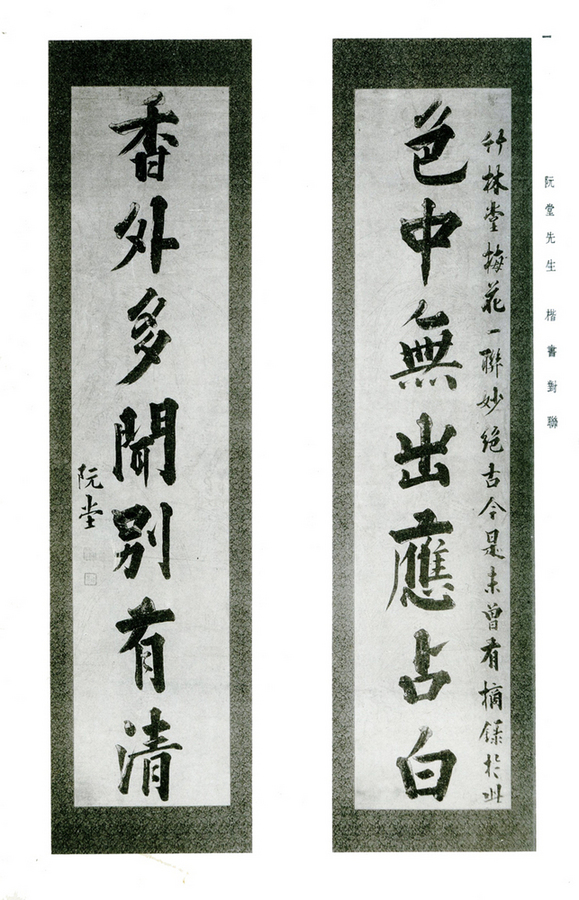 阮堂先生 楷書對聯
竹林堂梅花一聯妙絕古今是未曾有摘錄於此
色中無出應占白
香外多聞別有清
阮堂